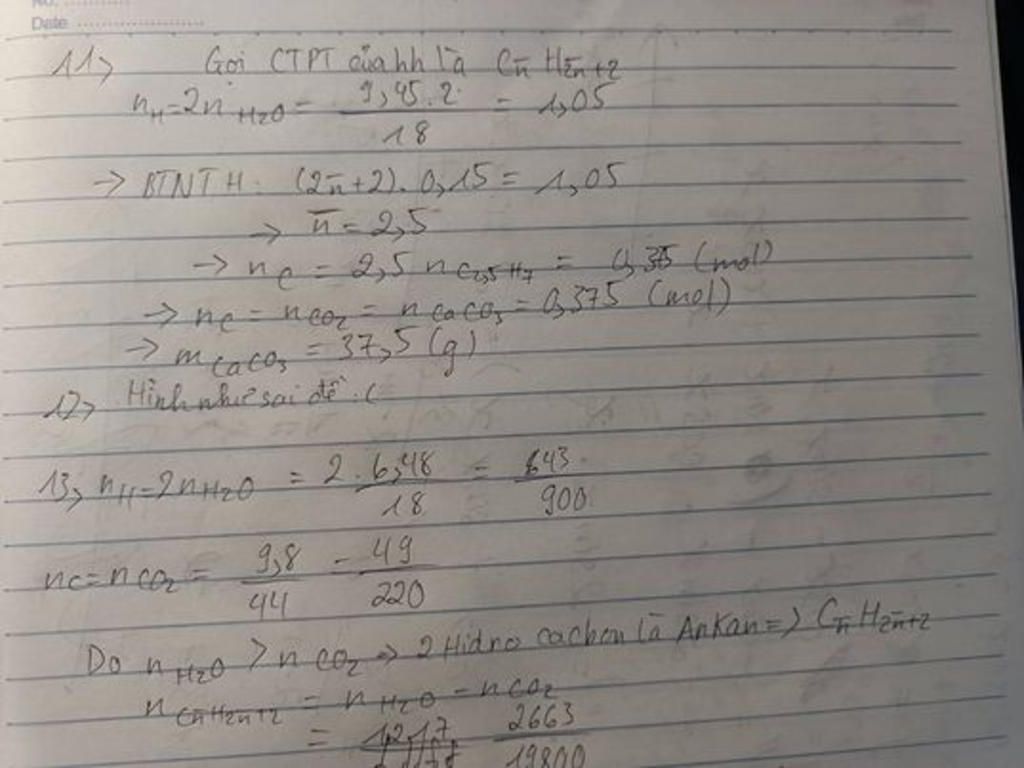 No. ............
Date .....................
11, Gọi CTPT của hh là Cn̄ H2n̄+2
nH=2nH2O= 9,45.2/18 = 1,05
→ BTNT H: (2n̄+2). 0,15 = 1,05
→ n̄ = 2,5
→ nC = 2,5 nC2,5H7 = 0,375 (mol)
→ nC = nCO2 = nCaCO3 = 0,375 (mol)
→ mCaCO3 = 37,5 (g)
12, Hình như sai đề :(
13, nH=2nH2O = 2.6,48/18 = 643/900
nC=nCO2= 9,8/44 = 49/220
Do nH2O > nCO2 → 2 Hidro cacbon là Ankan => Cn̄H2n̄+2
nCn̄H2n̄+2 = nH2O - nCO2
= 2663/19800